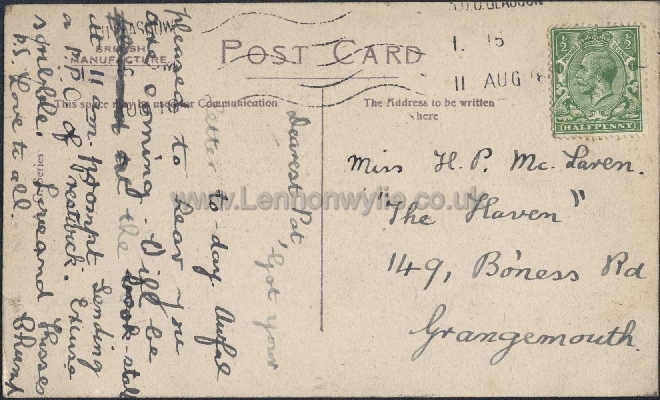 POST CARD
BRITISH
MANUFACTURE
This space may be used for Communication
The Address to be written
here
GLASGOW
1. 15
11 AUG
AUG
HALFPENNY
Dearest Pat,
Got your
letter to-day Awful
pleased to hear you
are coming. Will be
at the book stall
at 11 a.m. prompt. Sending
a P.P.C of Prestwick. Excuse
scribble. Love and Kisses
Chump
P.S. Love to all.
Series
Miss H. P. Mc. Laren.
"The Haven"
149, Bo'ness Rd
Grangemouth.
www.Lennonwylie.co.uk